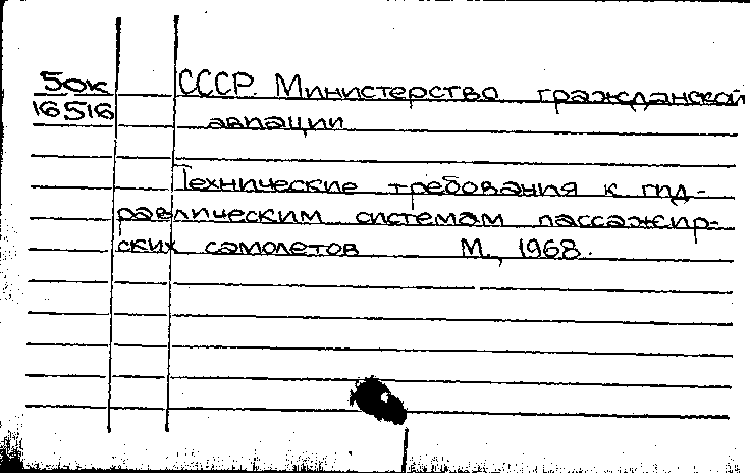 50к СССР. Министерство гражданской
16516 авиации
Технические требования к гид-
равлическим системам пассажир-
ских самолетов М., 1968.